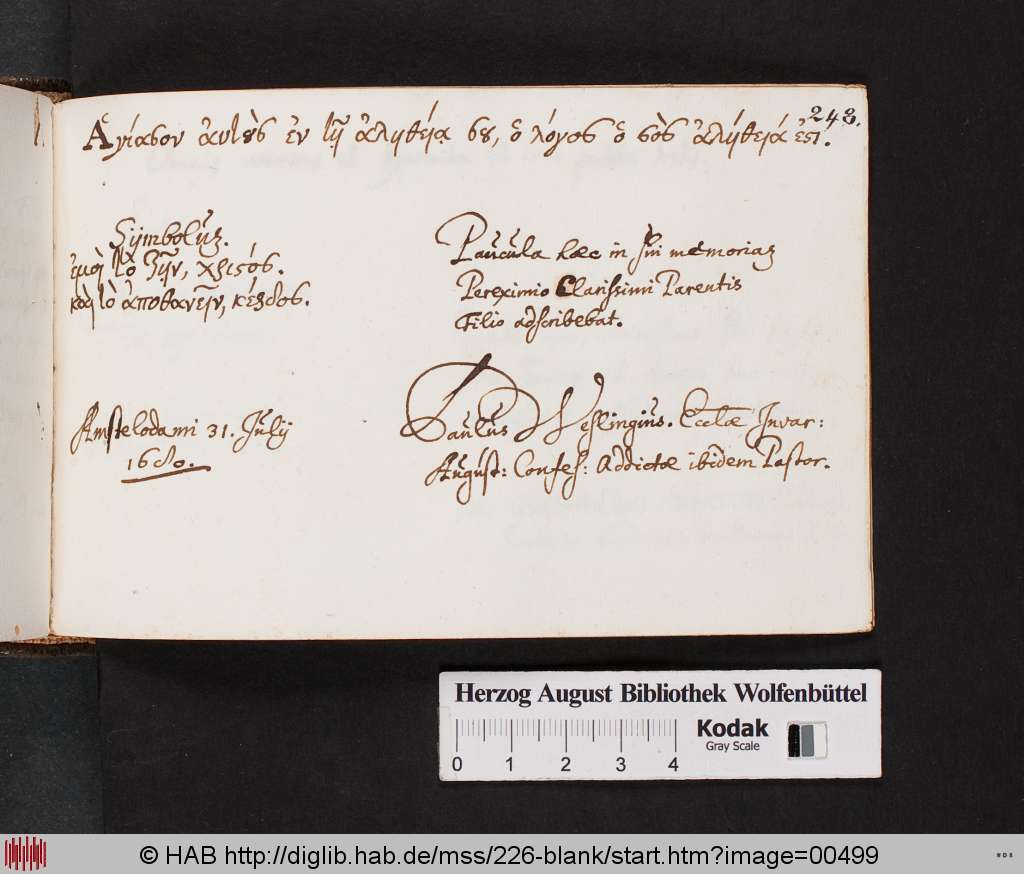 243.
Ἁγίασον ἀυτȣ̀ς ἐν τῇ ἀληθείᾳ σȣ, ὁ λόγος ὁ σὸς ἀλήθειά ἐϛι.
Symbolum.
ἐμοὶ τὸ ζῆν, χριϛός.
καὶ τὸ ἀποθανεῖν, κέρδος.
Paucula haec in sui memoriam
Pereximio Clarissimi Parentis
Filio adscribebat.
Amstelodami 31. Julij
1680.
Paulus Weslingius. Eccłae Invar:
August: Confess: Addictae ibidem Pastor.
Herzog August Bibliothek Wolfenbüttel
Kodak
Gray Scale
0 1 2 3 4
© HAB http://diglib.hab.de/mss/226-blank/start.htm?image=00499